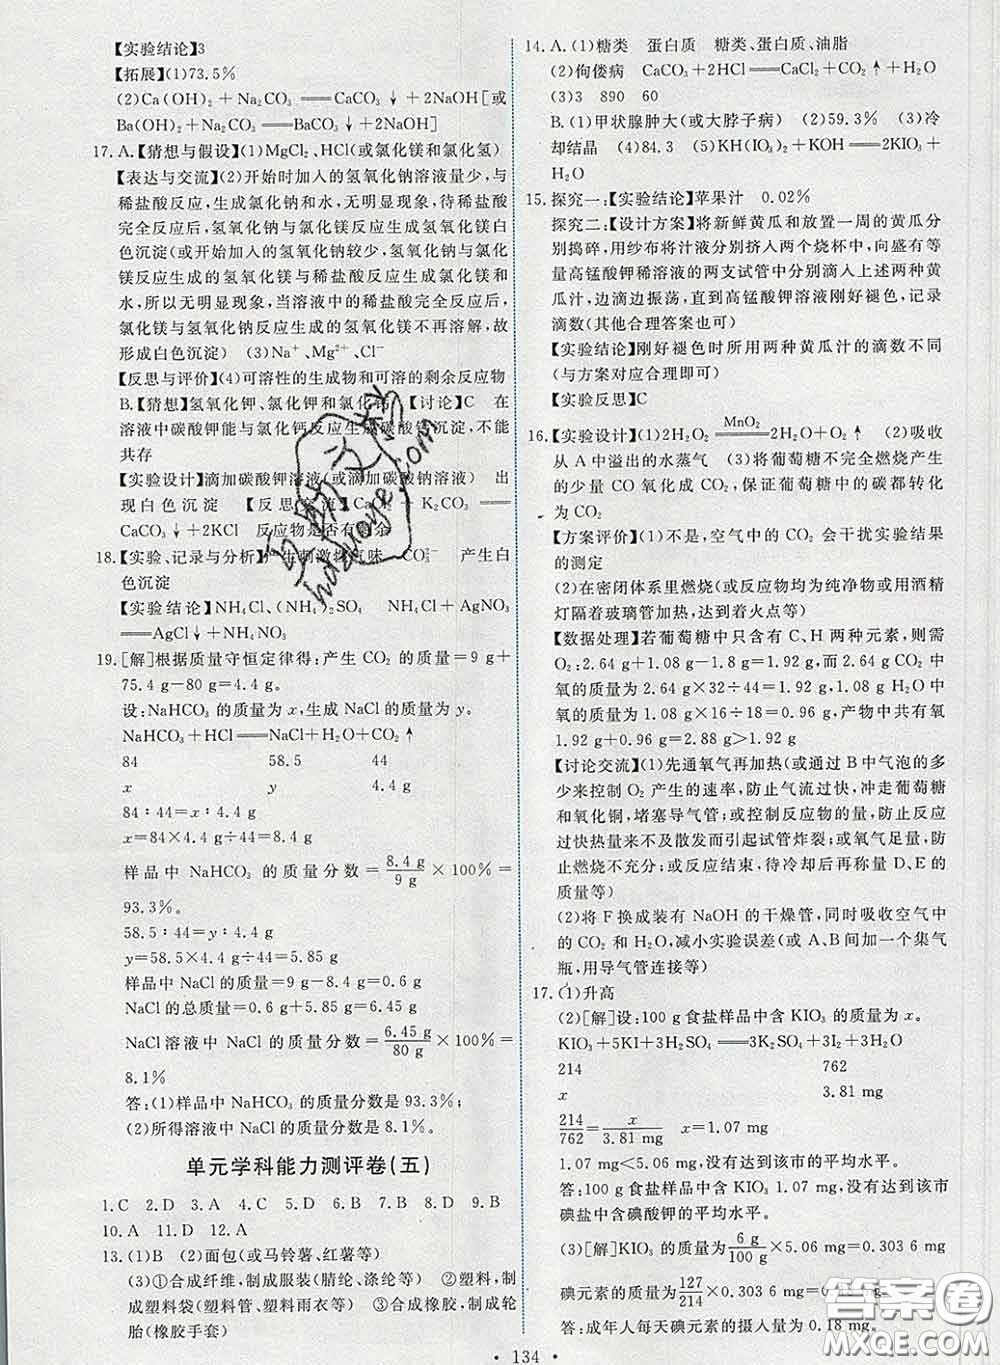 【实验结论】3
【拓展】(1)73.5%
(2)Ca(OH)₂+Na₂CO₃══CaCO₃↓+2NaOH[或
Ba(OH)₂+Na₂CO₃══BaCO₃↓+2NaOH]
17.A.【猜想与假设】(1)MgCl₂、HCl(或氯化镁和氯化氢)
【表达与交流】(2)开始时加入的氢氧化钠溶液量少,与
稀盐酸反应,生成氯化钠和水,无明显现象,当稀盐酸完
全反应后,氢氧化钠与氯化镁反应生成氢氧化镁白
色沉淀(或开始加入的氢氧化钠较少,氢氧化钠与氯化
镁反应生成的氢氧化镁与稀盐酸反应生成氯化镁和
水,所以无明显现象,当溶液中的稀盐酸完全反应后,
氯化镁与氢氧化钠反应生成的氢氧化镁不再溶解,故
形成白色沉淀) (3)Na⁺、Mg²⁺、Cl⁻
【反思与评价】(4)可溶性的生成物和可溶的剩余反应物
B.【猜想】氢氧化钾、氯化钾和氯化钙 【讨论】C 在
溶液中碳酸钾能与氯化钙反应生成碳酸钙沉淀,不能
共存
【实验设计】滴加碳酸钾溶液(或滴加碳酸钠溶液) 出
现白色沉淀 【反思交流】CaCl₂+K₂CO₃══
CaCO₃↓+2KCl 反应物是否有剩余
18.【实验、记录与分析】产生刺激性气味 CO₃²⁻ 产生白
色沉淀
【实验结论】NH₄Cl、(NH₄)₂SO₄ NH₄Cl+AgNO₃
══AgCl↓+NH₄NO₃
19.[解]根据质量守恒定律得:产生 CO₂ 的质量=9 g+
75.4 g−80 g=4.4 g。
设:NaHCO₃ 的质量为 x,生成 NaCl 的质量为 y。
NaHCO₃+HCl══NaCl+H₂O+CO₂↑
84 58.5 44
x y 4.4 g
84∶44=x∶4.4 g
x=84×4.4 g÷44=8.4 g
样品中 NaHCO₃ 的质量分数=8.4 g/9 g×100%=
93.3%。
58.5∶44=y∶4.4 g
y=58.5×4.4 g÷44=5.85 g
样品中 NaCl 的质量=9 g−8.4 g=0.6 g
NaCl 的总质量=0.6 g+5.85 g=6.45 g
NaCl 溶液中 NaCl 的质量分数=6.45 g/80 g×100%=
8.1%
答:(1)样品中 NaHCO₃ 的质量分数是 93.3%;
(2)所得溶液中 NaCl 的质量分数是 8.1%。
单元学科能力测评卷(五)
1.C 2.D 3.A 4.C 5.D 6.B 7.D 8.D 9.B
10.A 11.D 12.A
13.(1)B (2)面包(或马铃薯、红薯等)
(3)①合成纤维,制成服装(腈纶、涤纶等) ②塑料,制
成塑料袋(塑料管、塑料雨衣等) ③合成橡胶,制成轮
胎(橡胶手套)
14.A.(1)糖类 蛋白质 糖类、蛋白质、油脂
(2)佝偻病 CaCO₃+2HCl══CaCl₂+CO₂↑+H₂O
(3)3 890 60
B.(1)甲状腺肿大(或大脖子病) (2)59.3% (3)冷
却结晶 (4)84.3 (5)KH(IO₃)₂+KOH══2KIO₃+
H₂O
15.探究一:【实验结论】苹果汁 0.02%
探究二:【设计方案】将新鲜黄瓜和放置一周的黄瓜分
别捣碎,用纱布将汁液分别挤入两个烧杯中,向盛有等
量高锰酸钾稀溶液的两支试管中分别滴入上述两种黄
瓜汁,边滴边振荡,直到高锰酸钾溶液刚好褪色,记录
滴数(其他合理答案也可)
【实验结论】刚好褪色时所用两种黄瓜汁的滴数不同
(与方案对应合理即可)
【实验反思】C
16.【实验设计】(1)2H₂O₂ ══(MnO₂) 2H₂O+O₂↑ (2)吸收
从 A 中溢出的水蒸气 (3)将葡萄糖不完全燃烧产生
的少量 CO 氧化成 CO₂,保证葡萄糖中的碳都转化
为 CO₂
【方案评价】(1)不是,空气中的 CO₂ 会干扰实验结果
的测定
(2)在密闭体系里燃烧(或反应物均为纯净物或用酒精
灯隔着玻璃管加热,达到着火点等)
【数据处理】若葡萄糖中只含有 C、H 两种元素,则需
O₂:2.64 g+1.08 g−1.80 g=1.92 g;而 2.64 g CO₂ 中
氧的质量为 2.64 g×32÷44=1.92 g,1.08 g H₂O 中
氧的质量为 1.08 g×16÷18=0.96 g,产物中共有氧
1.92 g+0.96 g=2.88 g>1.92 g
【讨论交流】(1)先通氧气再加热(或通过 B 中气泡的多
少来控制 O₂ 产生的速率,防止气流过快,冲走葡萄糖
和氧化铜,堵塞导气管;或控制反应物的量,防止反应
过快热量来不及散发而引起试管炸裂;或氧气足量,防
止燃烧不充分;或反应结束,待冷却后再称量 D、E 的
质量等)
(2)将 F 换成装有 NaOH 的干燥管,同时吸收空气中
的 CO₂ 和 H₂O,减小实验误差(或 A、B 间加一个集气
瓶,用导气管连接等)
17.(1)升高
(2)[解]设:100 g 食盐样品中含 KIO₃ 的质量为 x。
KIO₃+5KI+3H₂SO₄══3K₂SO₄+3I₂+3H₂O
214 762
x 3.81 mg
214/762=x/3.81 mg x=1.07 mg
1.07 mg<5.06 mg,没有达到该市的平均水平。
答:100 g 食盐样品中含 KIO₃ 1.07 mg,没有达到该市
碘盐中含碘酸钾的平均水平。
(3)[解]KIO₃ 的质量为 6 g/100 g×5.06 mg=0.303 6 mg
碘元素的质量为 127/214×0.303 6 mg=0.18 mg
答:成年人每天碘元素的摄入量为 0.18 mg。
134
答案圈
MXQE.COM